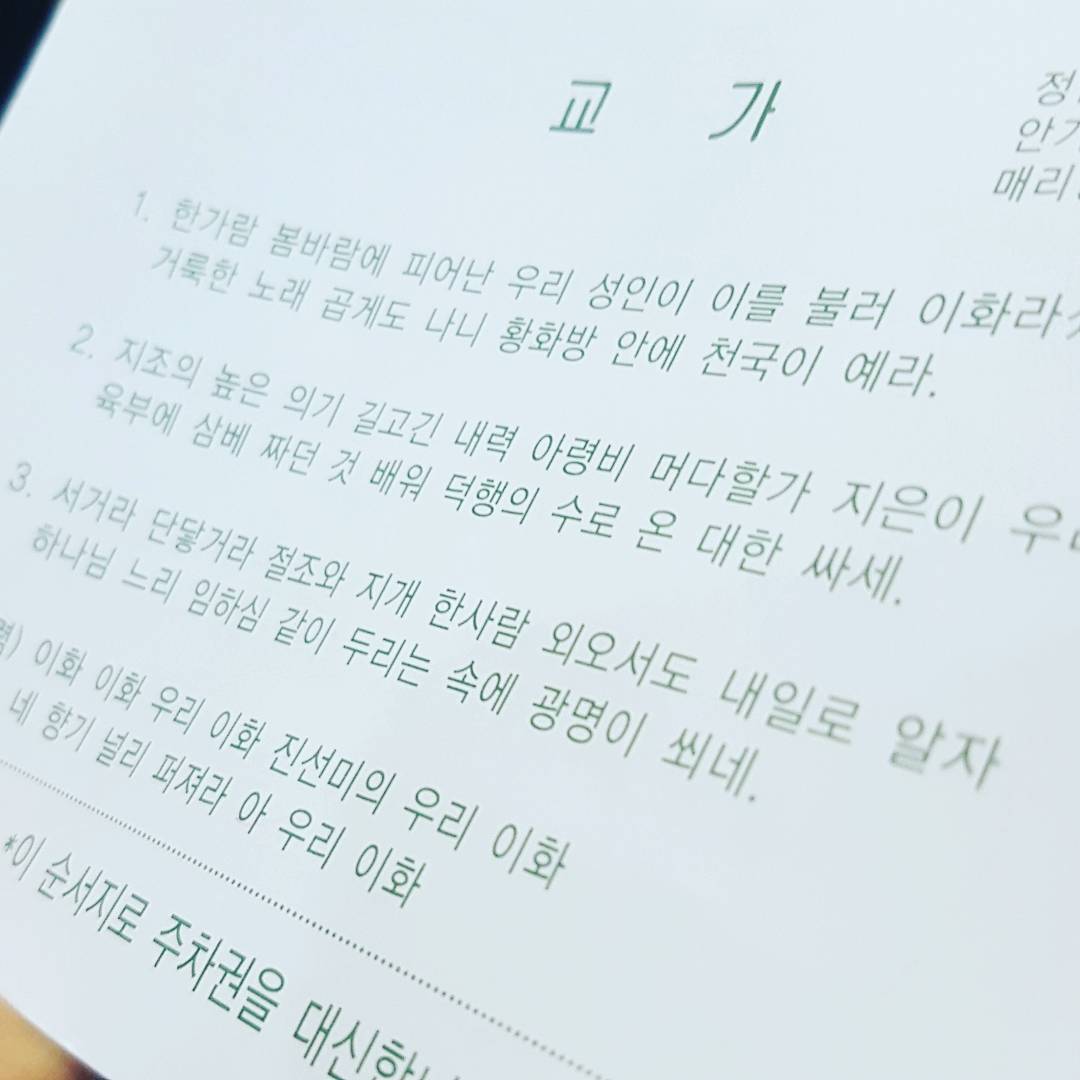 교 가
정
안기
매리
1. 한가람 봄바람에 피어난 우리 성인이 이를 불러 이화라
거룩한 노래 곱게도 나니 황화방 안에 천국이 예라.
2. 지조의 높은 의기 길고긴 내력 아령비 머다할가 지은이 우
육부에 삼베 짜던 것 배워 덕행의 수로 온 대한 싸세.
3. 서거라 단닿거라 절조와 지개 한사람 외오서도 내일로 알자
하나님 느리 임하심 같이 두리는 속에 광명이 쐬네.
렴) 이화 이화 우리 이화 진선미의 우리 이화
네 향기 널리 퍼져라 아 우리 이화
*이 순서지로 주차권을 대신한